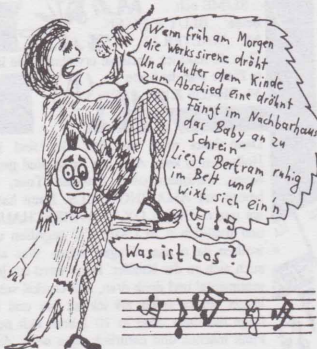 Wenn früh am Morgen
die Werkssirene dröht
Und Mutter dem Kinde
zum Abschied eine dröhnt
Fängt im Nachbarhaus
das Baby an zu
schrein
Liegt Bertram ruhig
im Bett und
wixt sich ein'n
Was ist Los?